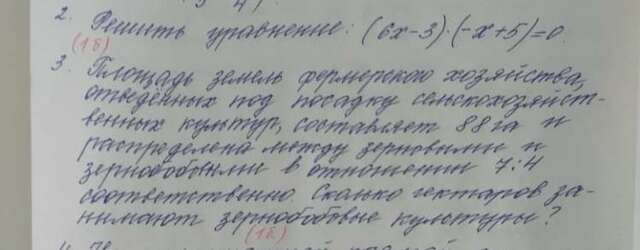 2. Решить уравнение: (6х-3)·(-х+5)=0.
(1б)
3. Площадь земель фермерского хозяйства,
отведённых под посадку сельскохозяйст-
венных культур, составляет 88 га и
распределена между зерновыми и
зернобобовыми в отношении 7:4
соответственно. Сколько гектаров за-
нимают зернобобовые культуры?
(1б)